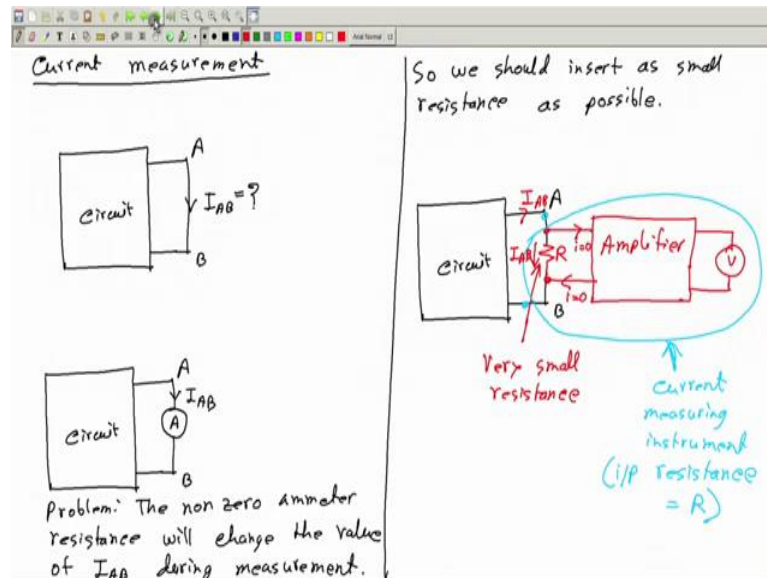 Current measurement
A
Circuit
I_AB = ?
B
A
I_AB
A
Circuit
B
Problem: The non zero ammeter
resistance will change the value
of I_AB during measurement.
So we should insert as small
resistance as possible.
I_AB A
i=0
Amplifier
V
Circuit
I_AB
R
i=0
B
Very small
resistance
Current
measuring
instrument
(i/p resistance
= R)